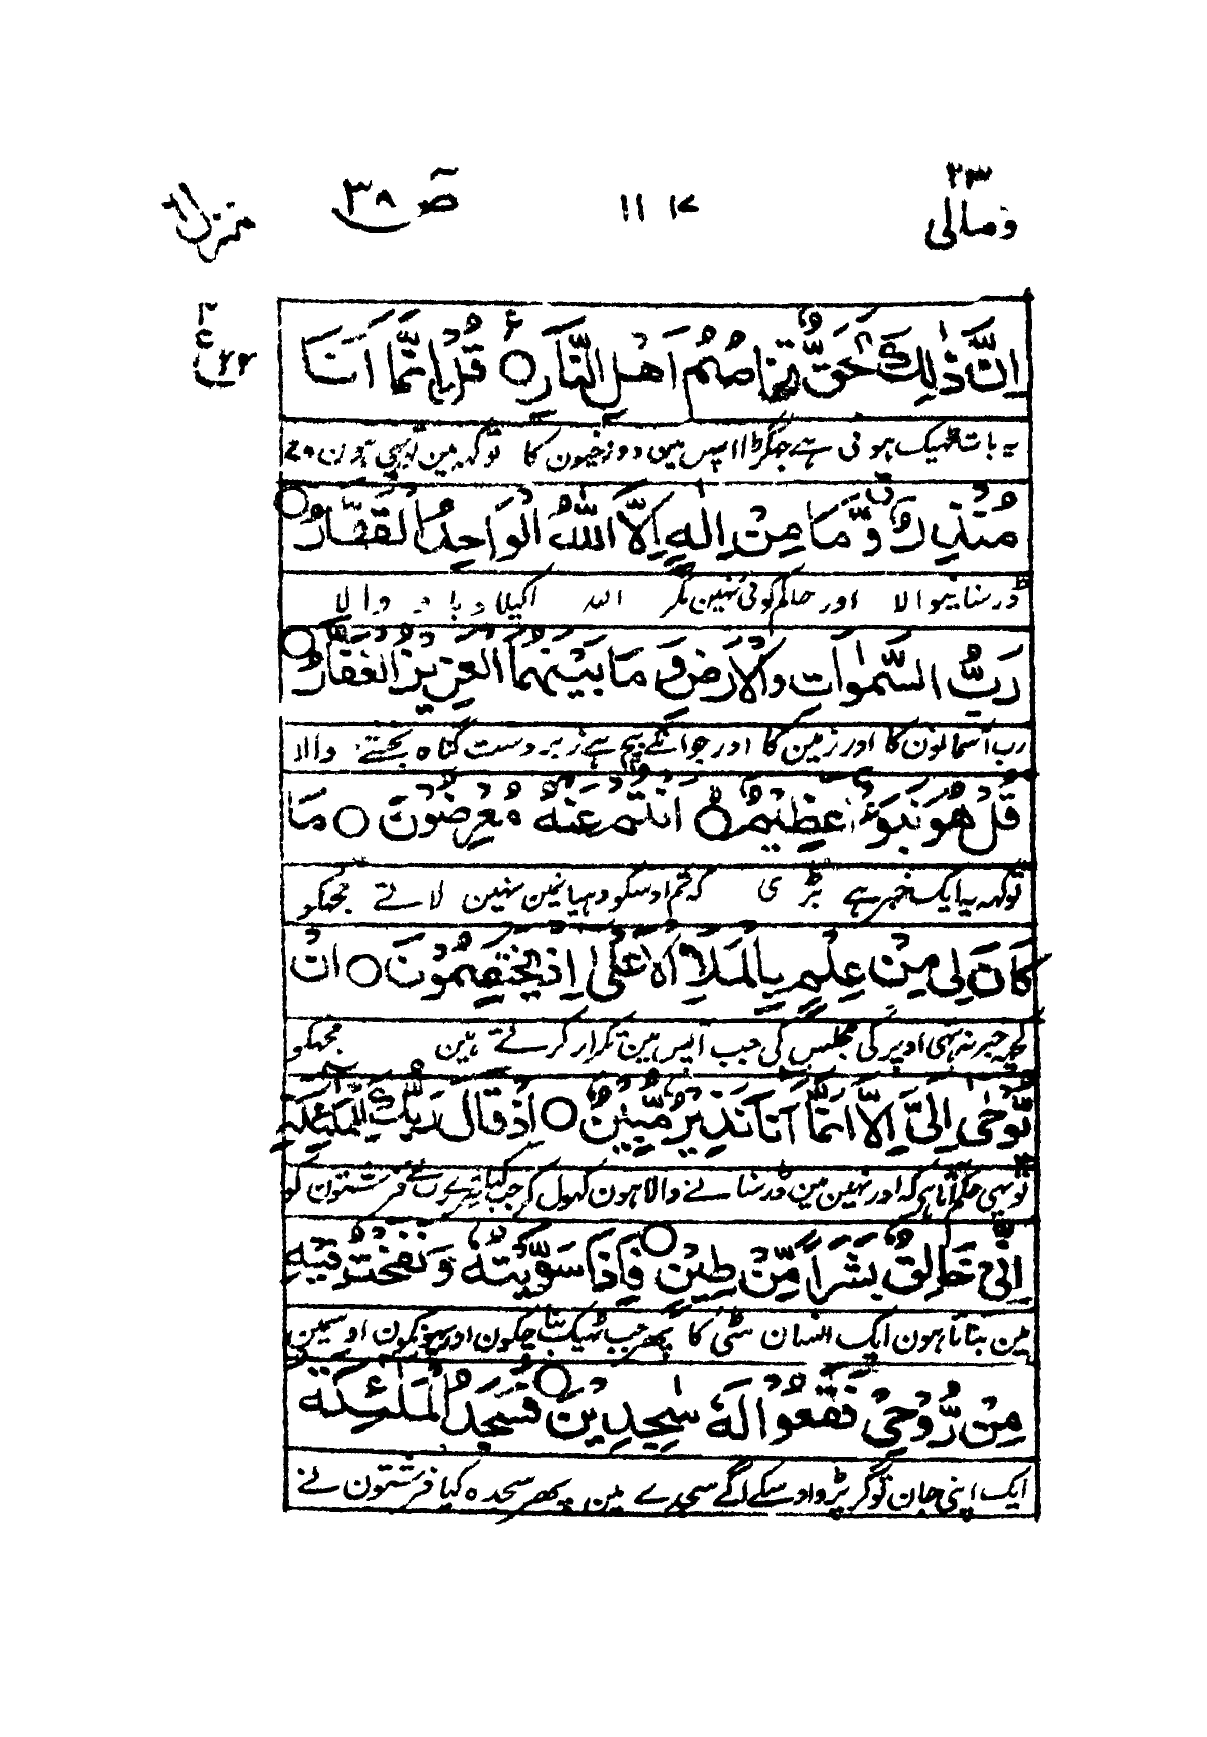 ومالی ۲۳ ۱۱۱۷ ص ۳۸ منزل
اِنَّ ذٰلِكَ لَحَقٌّ تَخَاصُمُ اَهْلِ النَّارِ ○ قُلْ اِنَّمَا اَنَا
یہ بات ٹھیک ہونی ہے جھگڑا آپس مین دوزخیون کا تو کہہ مین تو یہی ہون
مُنْذِرٌ وَّمَا مِنْ اِلٰهٍ اِلَّا اللّٰهُ الْوَاحِدُ الْقَهَّارُ ○
ڈر سنانیوالا اور حاکم کوئی نہین مگر اللہ اکیلا دباو والا
رَبُّ السَّمٰوَاتِ وَالْاَرْضِ وَمَا بَيْنَهُمَا الْعَزِيْزُ الْغَفَّارُ ○
رب آسمانون کا اور زمین کا اور جو انکے بیچ ہے زبردست گناہ بخشنے والا
قُلْ هُوَ نَبَؤٌا عَظِيْمٌ ○ اَنْتُمْ عَنْهُ مُعْرِضُوْنَ ○ مَا
تو کہہ یہ ایک خبر ہے بڑی کہ تم اوسکو دہیانمین نہین لاتے مجھکو
كَانَ لِيَ مِنْ عِلْمٍ بِالْمَلَاِ الْاَعْلٰى اِذْ يَخْتَصِمُوْنَ ○ اِنْ
کچھ خبر نہ تہی اوپر کی مجلس کی جب آپس مین تکرار کرتے ہین مجھکو
يُّوْحٰى اِلَيَّ اِلَّا اَنَّمَا اَنَا نَذِيْرٌ مُّبِيْنٌ ○ اِذْ قَالَ رَبُّكَ لِلْمَلٰئِكَةِ
تو یہی حکم آتا ہے کہ اور نہین مین ڈر سنانے والا ہون کہول کر جب کہا تیرے رب نے فرشتون کو
اِنِّيْ خَالِقٌ بَشَرًا مِّنْ طِيْنٍ ○ فَاِذَا سَوَّيْتُهٗ وَنَفَخْتُ فِيْهِ
مین بناتا ہون ایک انسان مٹی کا پھر جب ٹھیک بنا چکون اور پھونکون اوسمین
مِنْ رُّوْحِيْ فَقَعُوْا لَهٗ سٰجِدِيْنَ ○ فَسَجَدَ الْمَلٰئِكَةُ
ایک اپنی جان تو گر پڑو اوسکے آگے سجدے مین پھر سجدہ کیا فرشتون نے